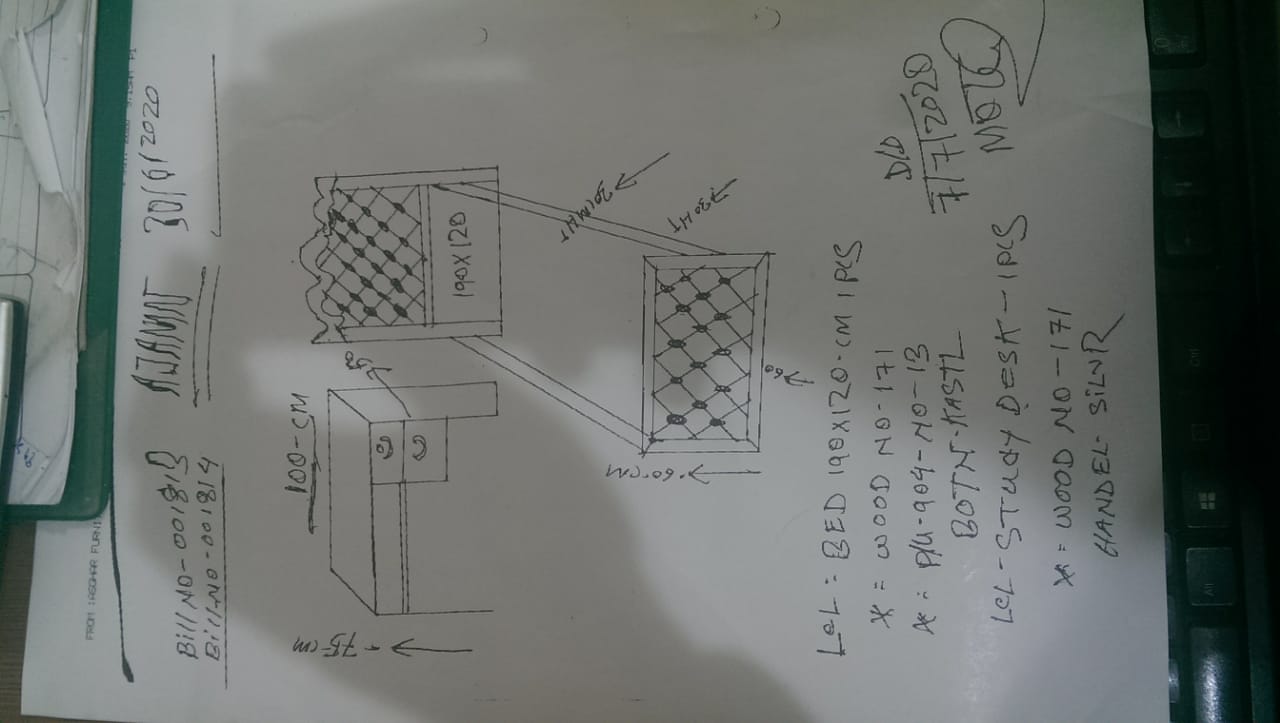 FROM :ASGHAR FURNI
Bill NO-001813
Bill-NO-001814
AJAMN
30/6/2020
100-CM
75-CM
190X120
60.CM
60
LCL = BED 190X120.CM 1PCS
* = WOOD NO-171
* = P/U-904-NO-13
BOTN-KASTL
LCL-STUDY DESK-1PCS
* = WOOD NO-171
HANDEL-SILVR
D/D
7/7/2020
Alt
Ctrl